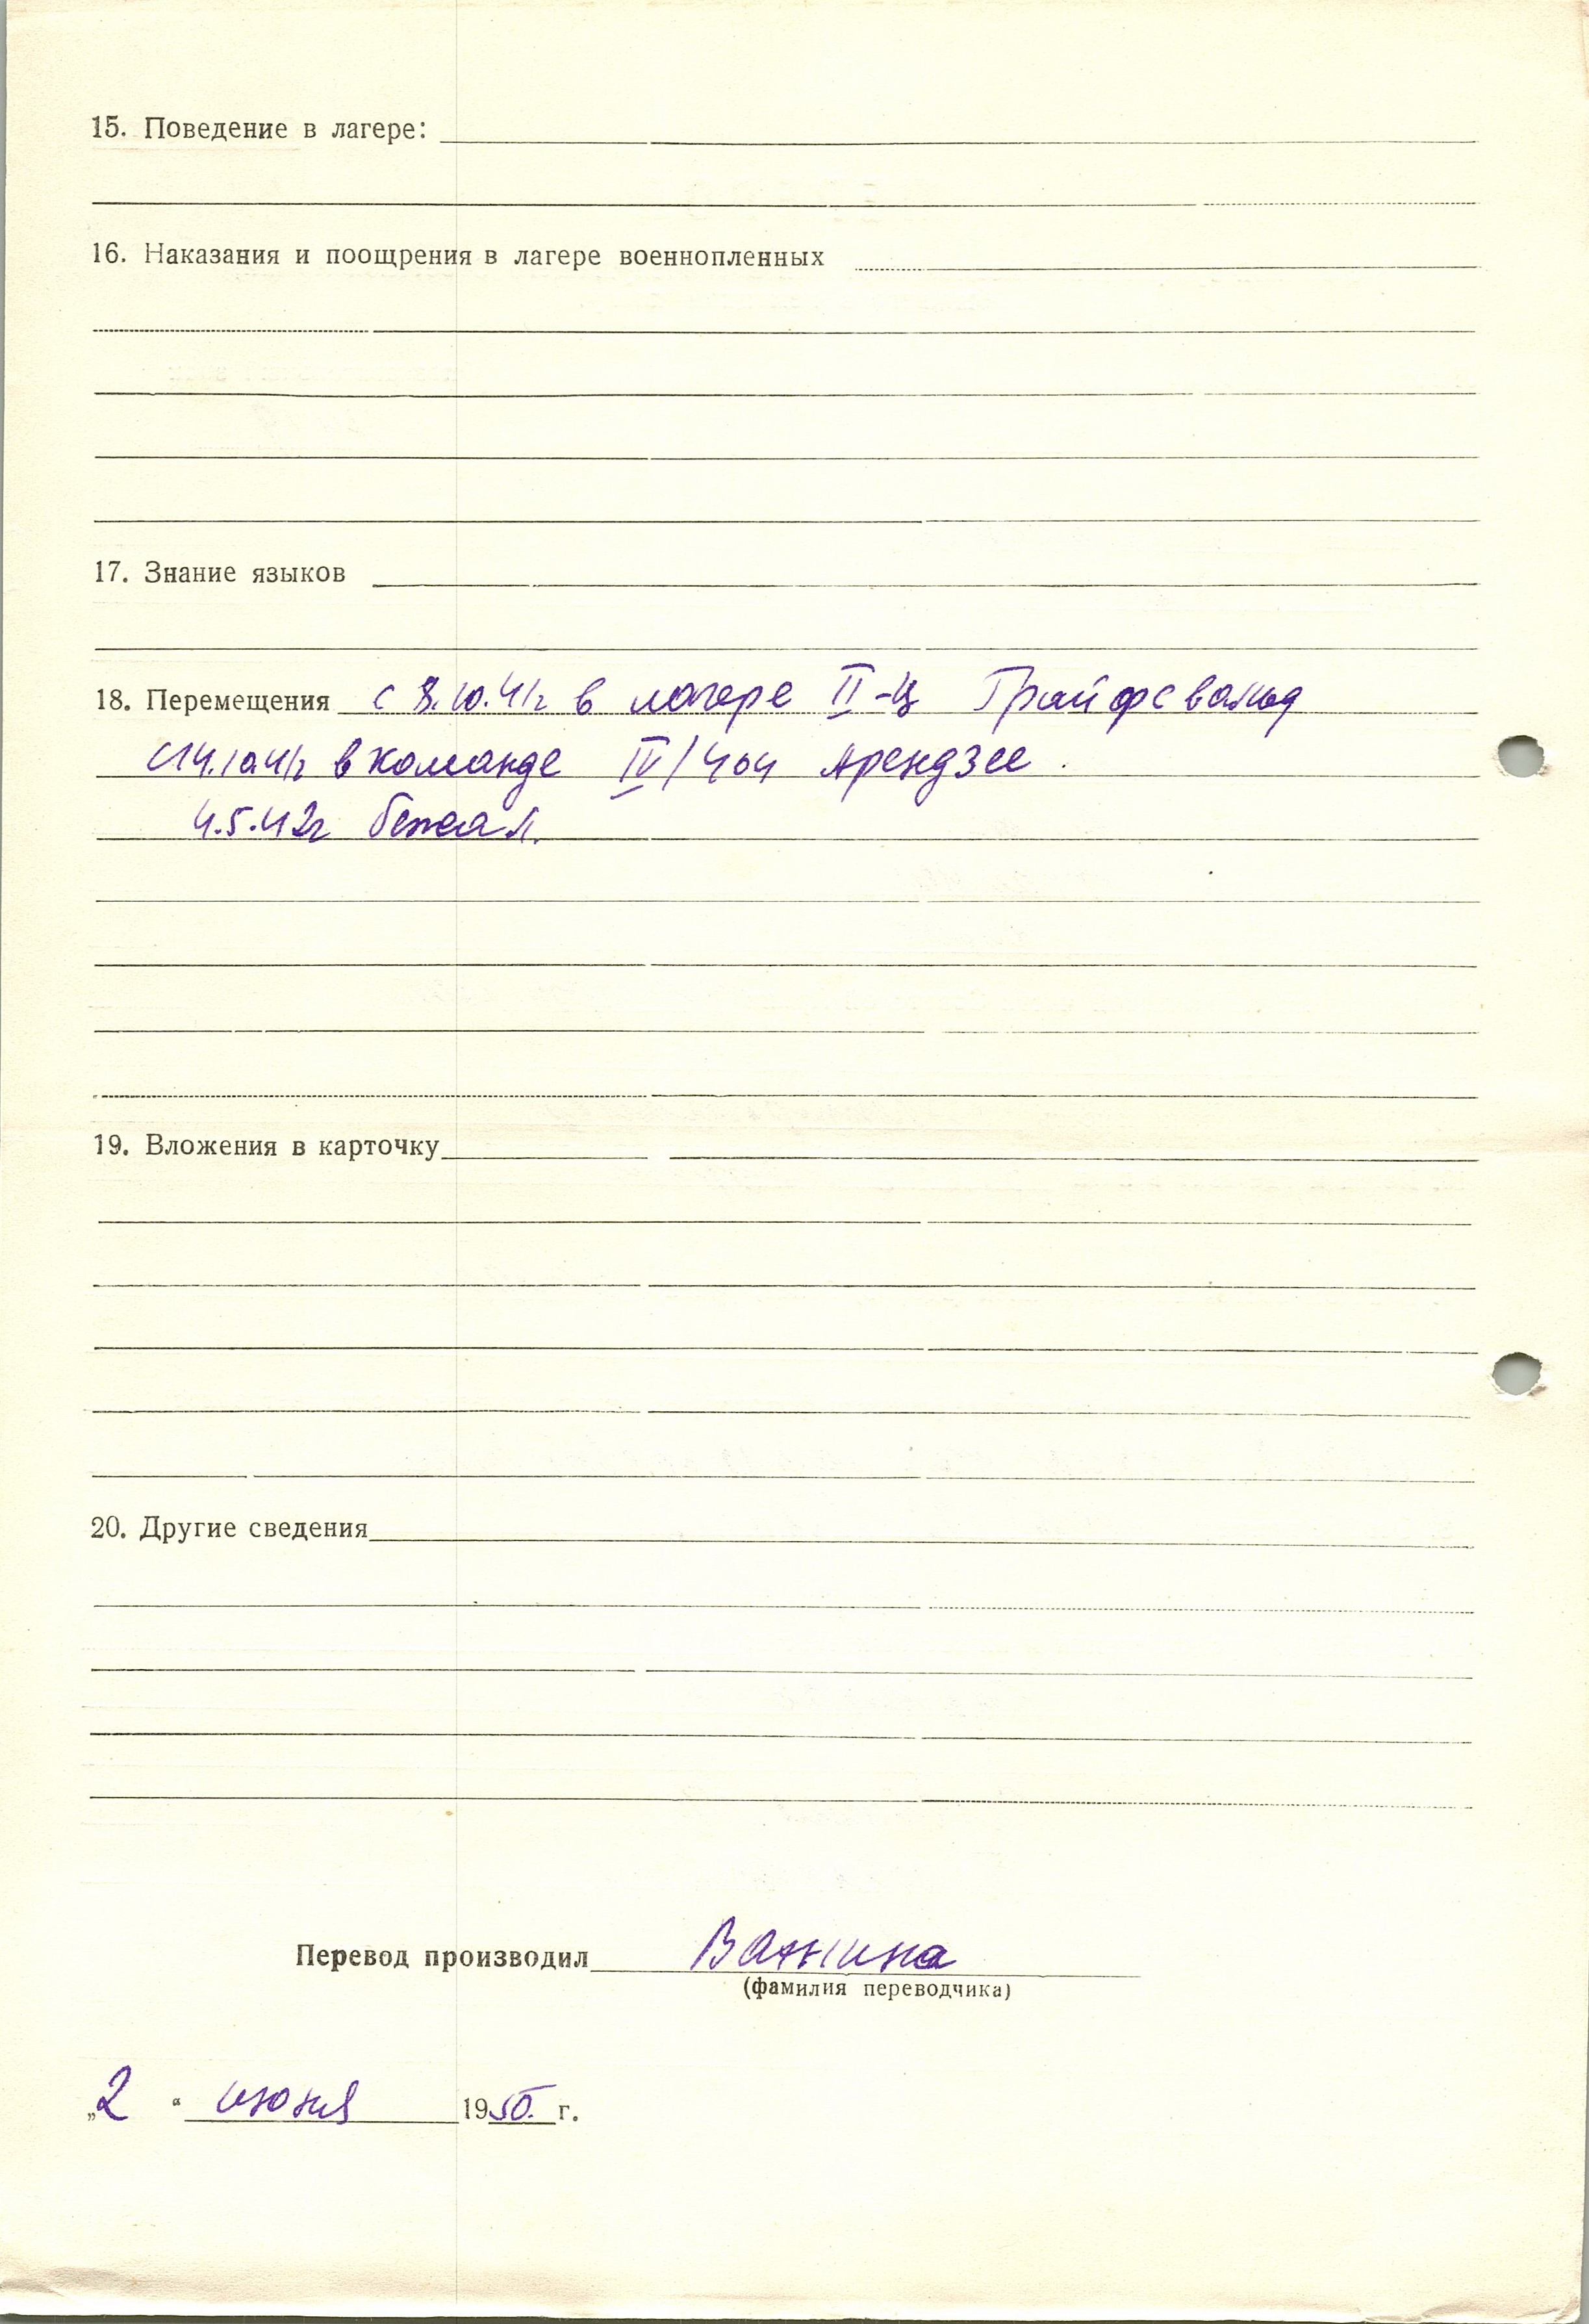 15. Поведение в лагере:
16. Наказания и поощрения в лагере военнопленных
17. Знание языков
18. Перемещения с 8.10.41г в лагере II-Ц Грайфсвальд
с 14.10.41г в команде IV/404 Арендзее.
4.5.42г бежал.
19. Вложения в карточку
20. Другие сведения
Перевод производил Ванина
(фамилия переводчика)
„2 “ июня 1950. г.